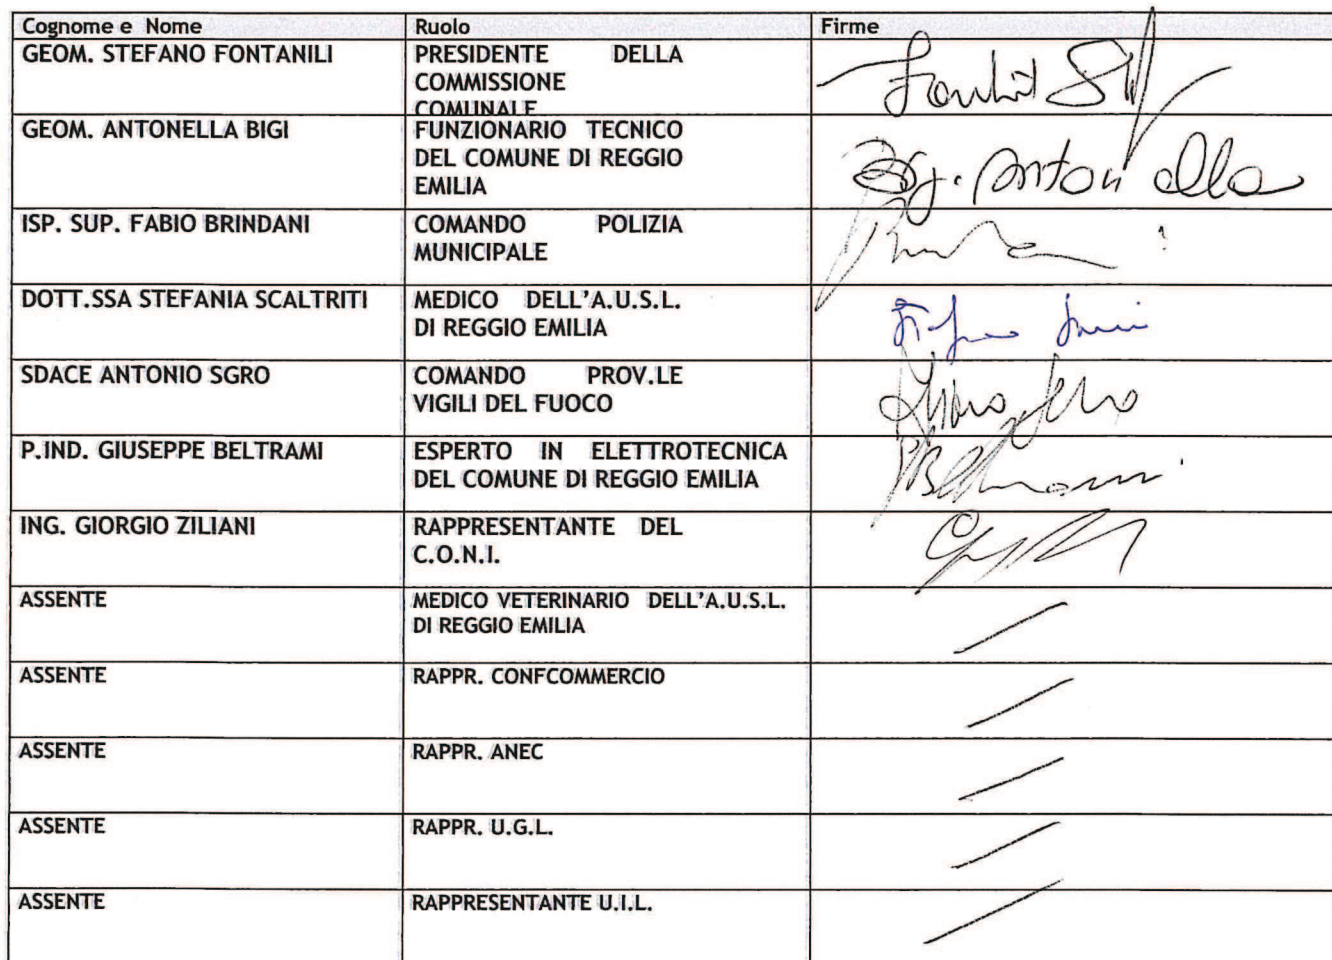 Cognome e Nome Ruolo Firme
GEOM. STEFANO FONTANILI PRESIDENTE DELLA
COMMISSIONE
COMUNALE
GEOM. ANTONELLA BIGI FUNZIONARIO TECNICO
DEL COMUNE DI REGGIO
EMILIA
Antonella
ISP. SUP. FABIO BRINDANI COMANDO POLIZIA
MUNICIPALE
DOTT.SSA STEFANIA SCALTRITI MEDICO DELL'A.U.S.L.
DI REGGIO EMILIA
SDACE ANTONIO SGRO COMANDO PROV.LE
VIGILI DEL FUOCO
P.IND. GIUSEPPE BELTRAMI ESPERTO IN ELETTROTECNICA
DEL COMUNE DI REGGIO EMILIA
ING. GIORGIO ZILIANI RAPPRESENTANTE DEL
C.O.N.I.
ASSENTE MEDICO VETERINARIO DELL'A.U.S.L.
DI REGGIO EMILIA
ASSENTE RAPPR. CONFCOMMERCIO
ASSENTE RAPPR. ANEC
ASSENTE RAPPR. U.G.L.
ASSENTE RAPPRESENTANTE U.I.L.